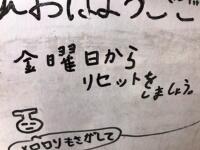 おはようござ
金曜日から
リセットを
しましょう。
ロリもさがして